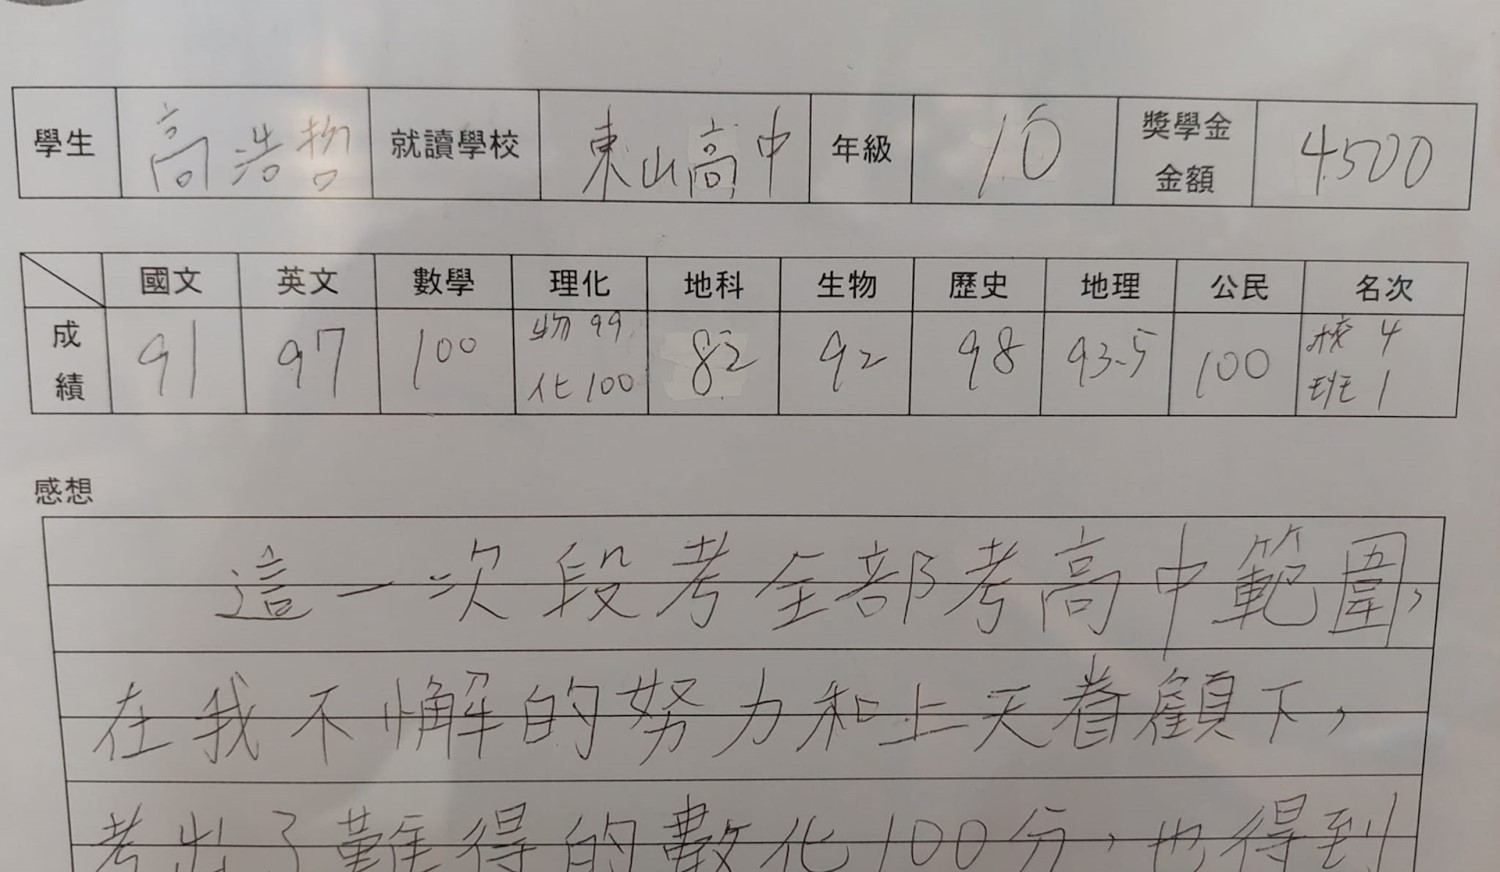 學生 高浩哲 就讀學校 東山高中 年級 10 獎學金金額 4500
國文 英文 數學 理化 地科 生物 歷史 地理 公民 名次
成績 91 97 100 物99 化100 82 92 98 93.5 100 校4 班1
感想
這一次段考全部考高中範圍,
在我不懈的努力和上天眷顧下,
考出了難得的數化100分,也得到